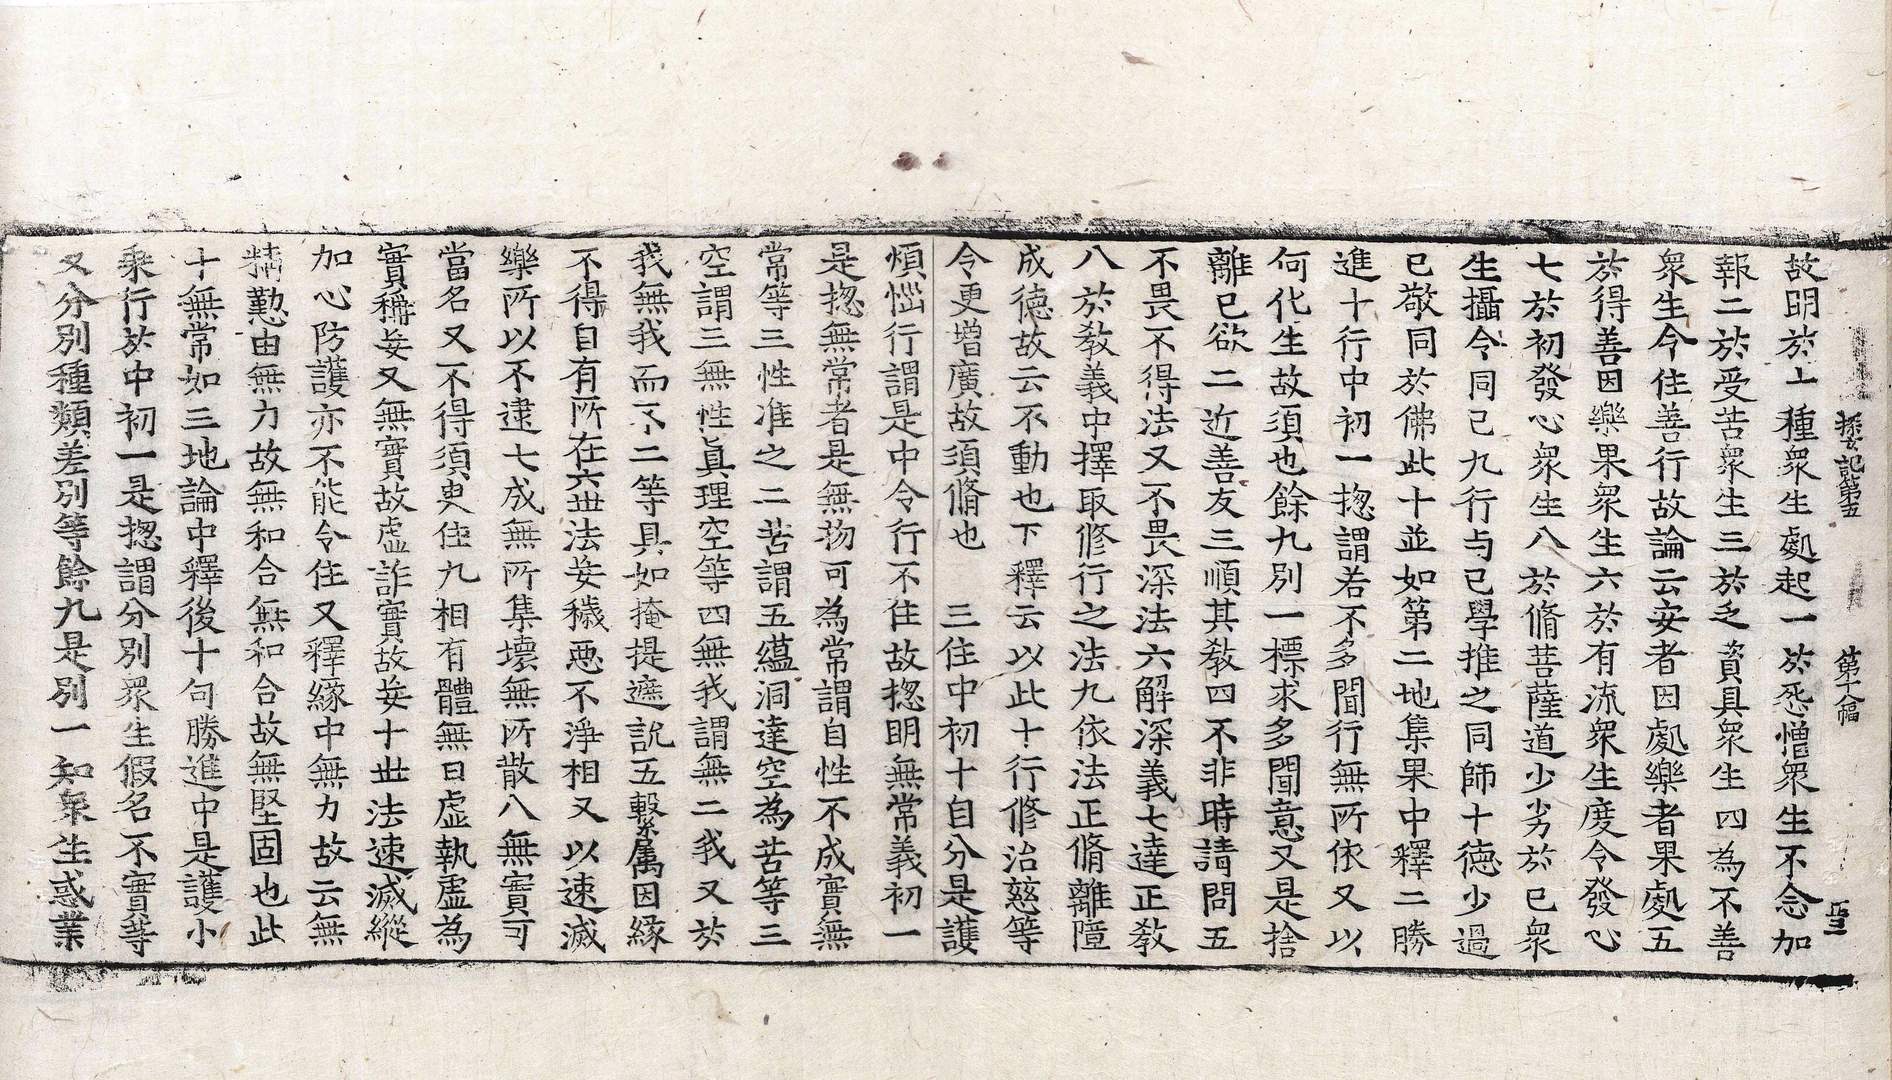 探玄記第五 第十八幅
故明於上種衆生處起一於惡憎衆生不念加
報二於受苦衆生三於乏資具衆生四為不善
衆生令住善行故論云安者因處樂者果處五
於得善因樂果衆生六於有流衆生度令發心
七於初發心衆生八於脩菩薩道少劣於已衆
生攝令同已九行与已學推之同師十德少過
已敬同於佛此十並如第二地集果中釋二勝
進十行中初一揔謂若不多聞行無所依又以
何化生故須也餘九別一標求多聞意又是捨
離已欲二近善友三順其教四不非時請問五
不畏不得法又不畏深法六解深義七達正教
八於教義中擇取修行之法九依法正脩離障
成德故云不動也下釋云以此十行修治慈等
令更增廣故須脩也 三住中初十自分是護
煩惱行謂是中令行不住故揔明無常義初一
是揔無常者是無物可為常謂自性不成實無
常等三性准之二苦謂五蘊洞達空為苦等三
空謂三無性真理空等四無我謂無二我又於
我無我而不二等具如掩提遮說五繫属因緣
不得自有所在六世法妄穢惡不淨相又以速滅
樂所以不逮七成無所集壞無所散八無實可
當名又不得須臾住九相有體無曰虛執虛為
實稱妄又無實故虛詐實故妄十世法速滅縱
加心防護亦不能令住又釋緣中無力故云無
精懃由無力故無和合無和合故無堅固也此
十無常如三地論中釋後十句勝進中是護小
乘行於中初一是揔謂分別衆生假名不實等
又分別種類差別等餘九是別一知衆生惑業